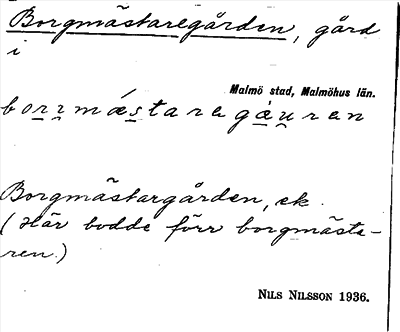 Borgmästaregården, gård
i
Malmö stad, Malmöhus län.
borrmǽstaragæuren
Borgmästargården, ek.
(Här bodde förr borgmästa-
ren.)
NILS NILSSON 1936.